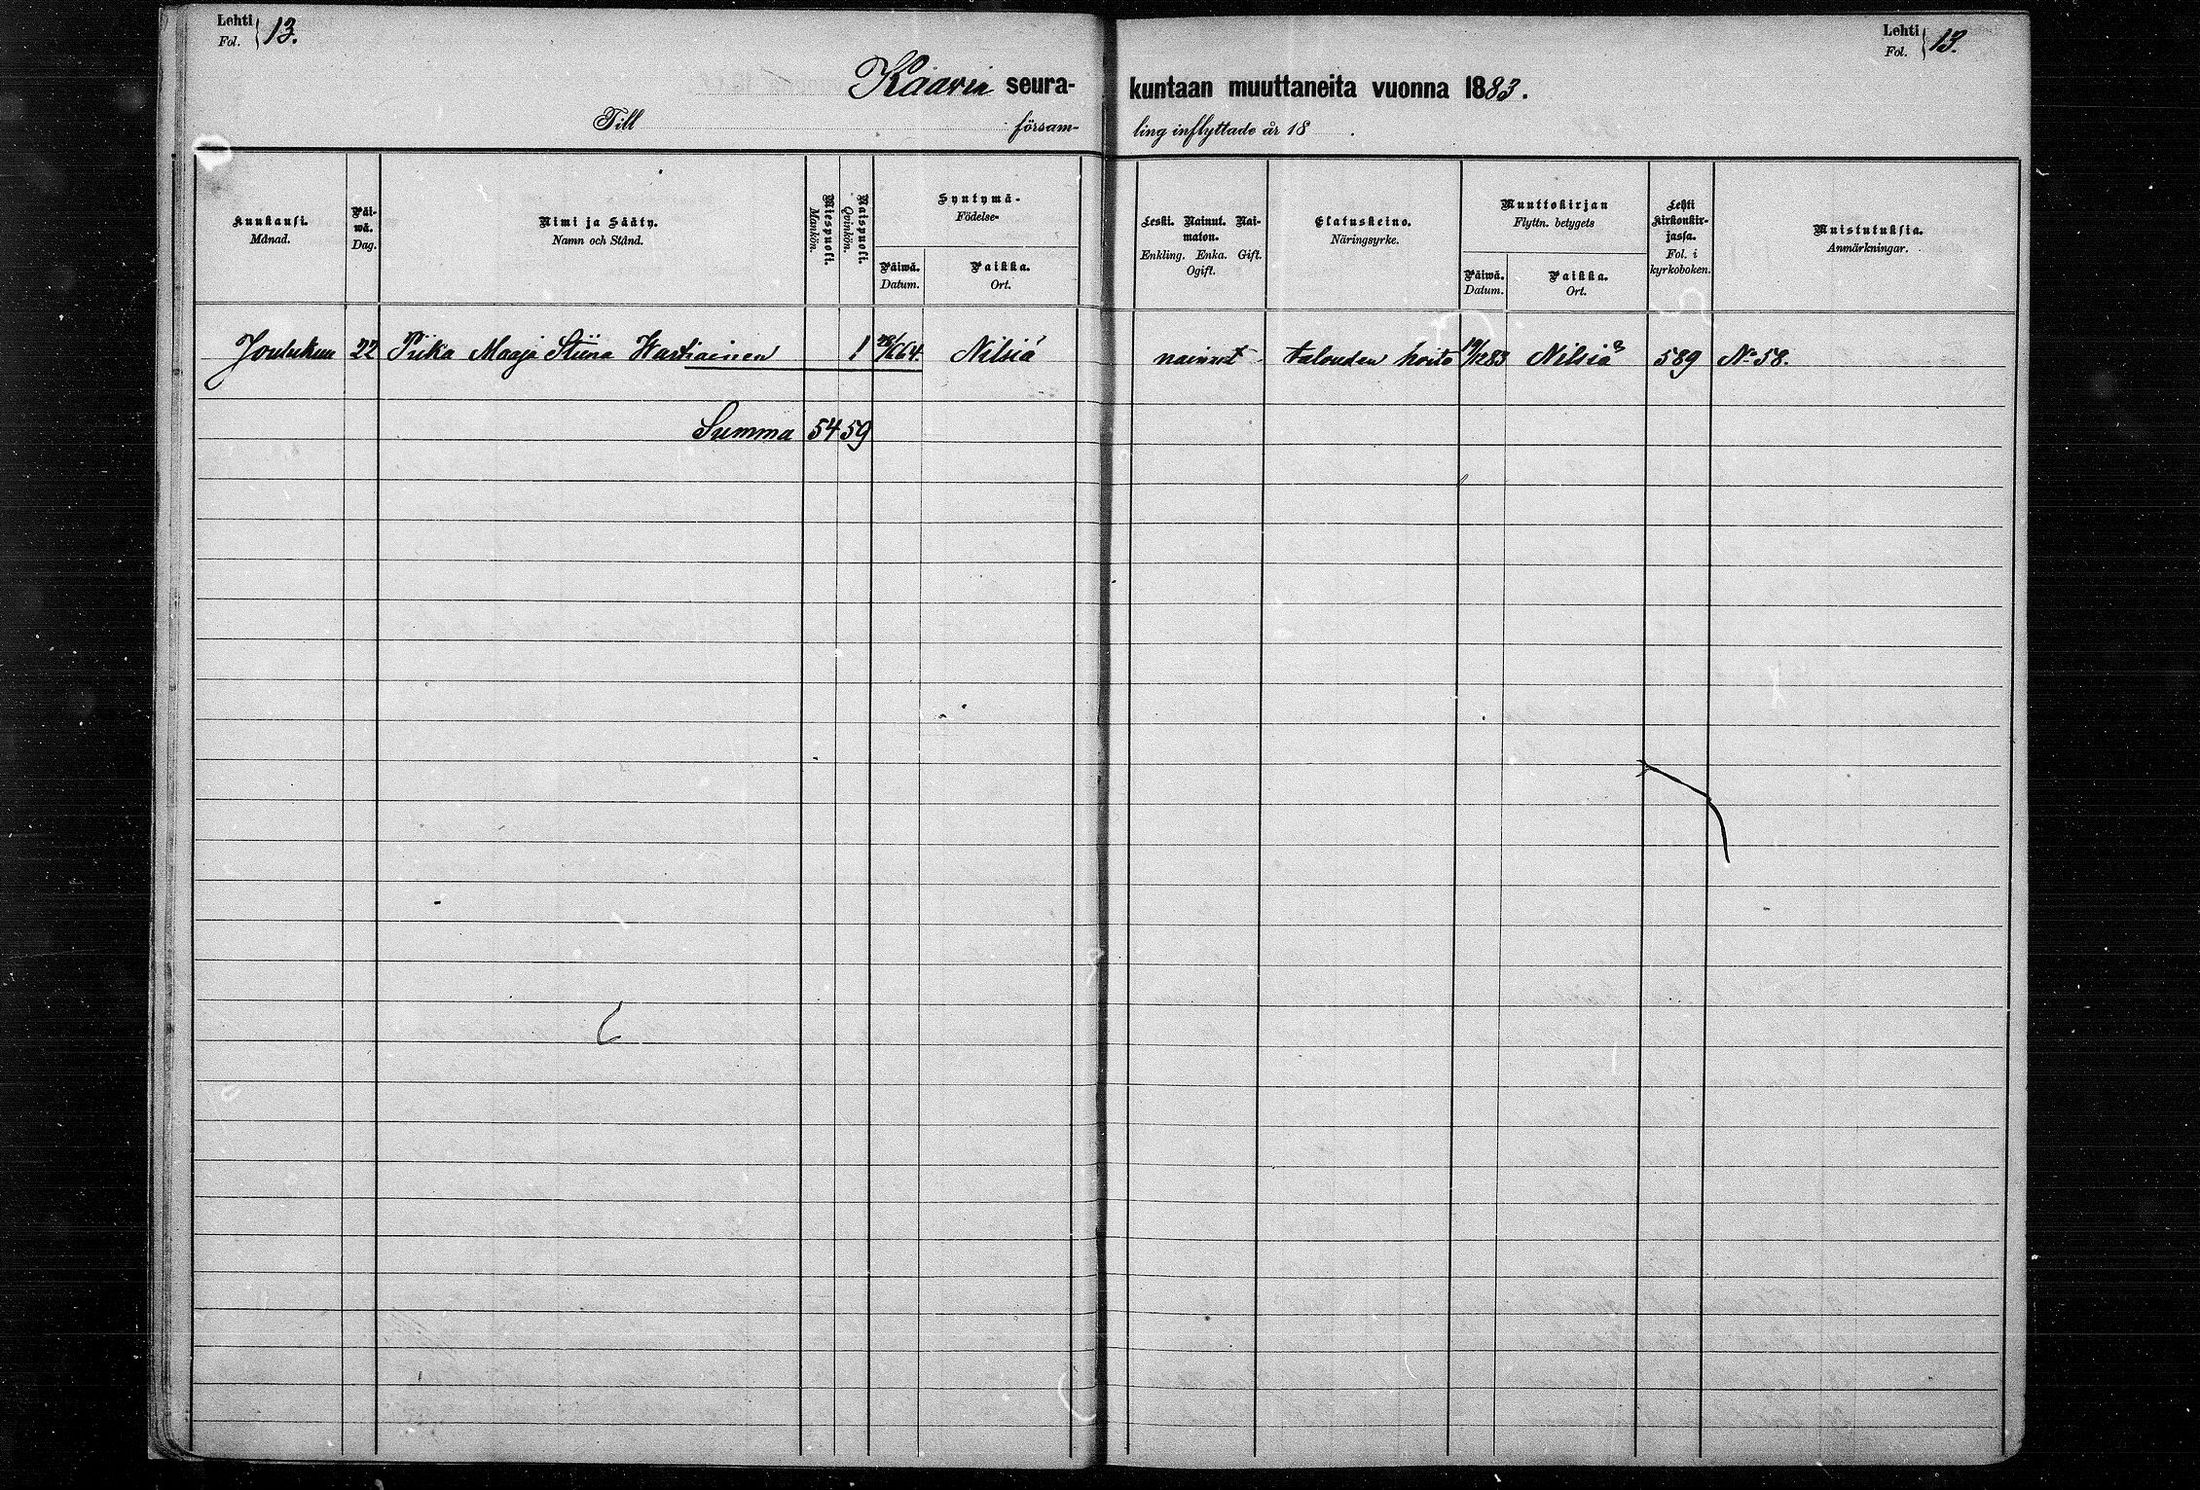 Lehti Fol. } 13.
Lehti Fol. } 13.
Kaavin seura- kuntaan muuttaneita vuonna 1883.
Till försam- ling inflyttade år 18 .
Kuukausi. Månad.
Päiwä. Dag.
Nimi ja Sääty. Namn och Stånd.
Miespuoli. Mankön.
Vaispuoli. Qvinkön.
Syntymä- Födelse-
Päiwä. Datum.
Paikka. Ort.
Leski. Nainut. Naimaton. Enkling. Enka. Gift. Ogift.
Elatuskeino. Näringsyrke.
Muuttokirjan Flyttn. betygets
Päiwä. Datum.
Paikka. Ort.
Lehti kirkonkirjassa. Fol. i kyrkoboken.
Muistutuksia. Anmärkningar.
Joulukuu 22 Piika Maaja Stiina Wartiainen 1 64 Nilsiä nainut talouden hoito 19/12 83 Nilsiä 589 No 58.
Summa 54 59